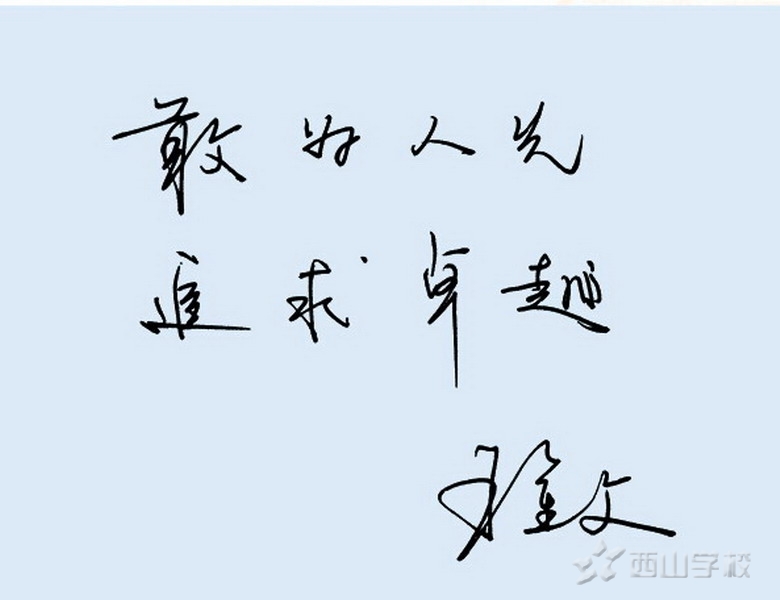 敢为人先
追求卓越
文
西山学校